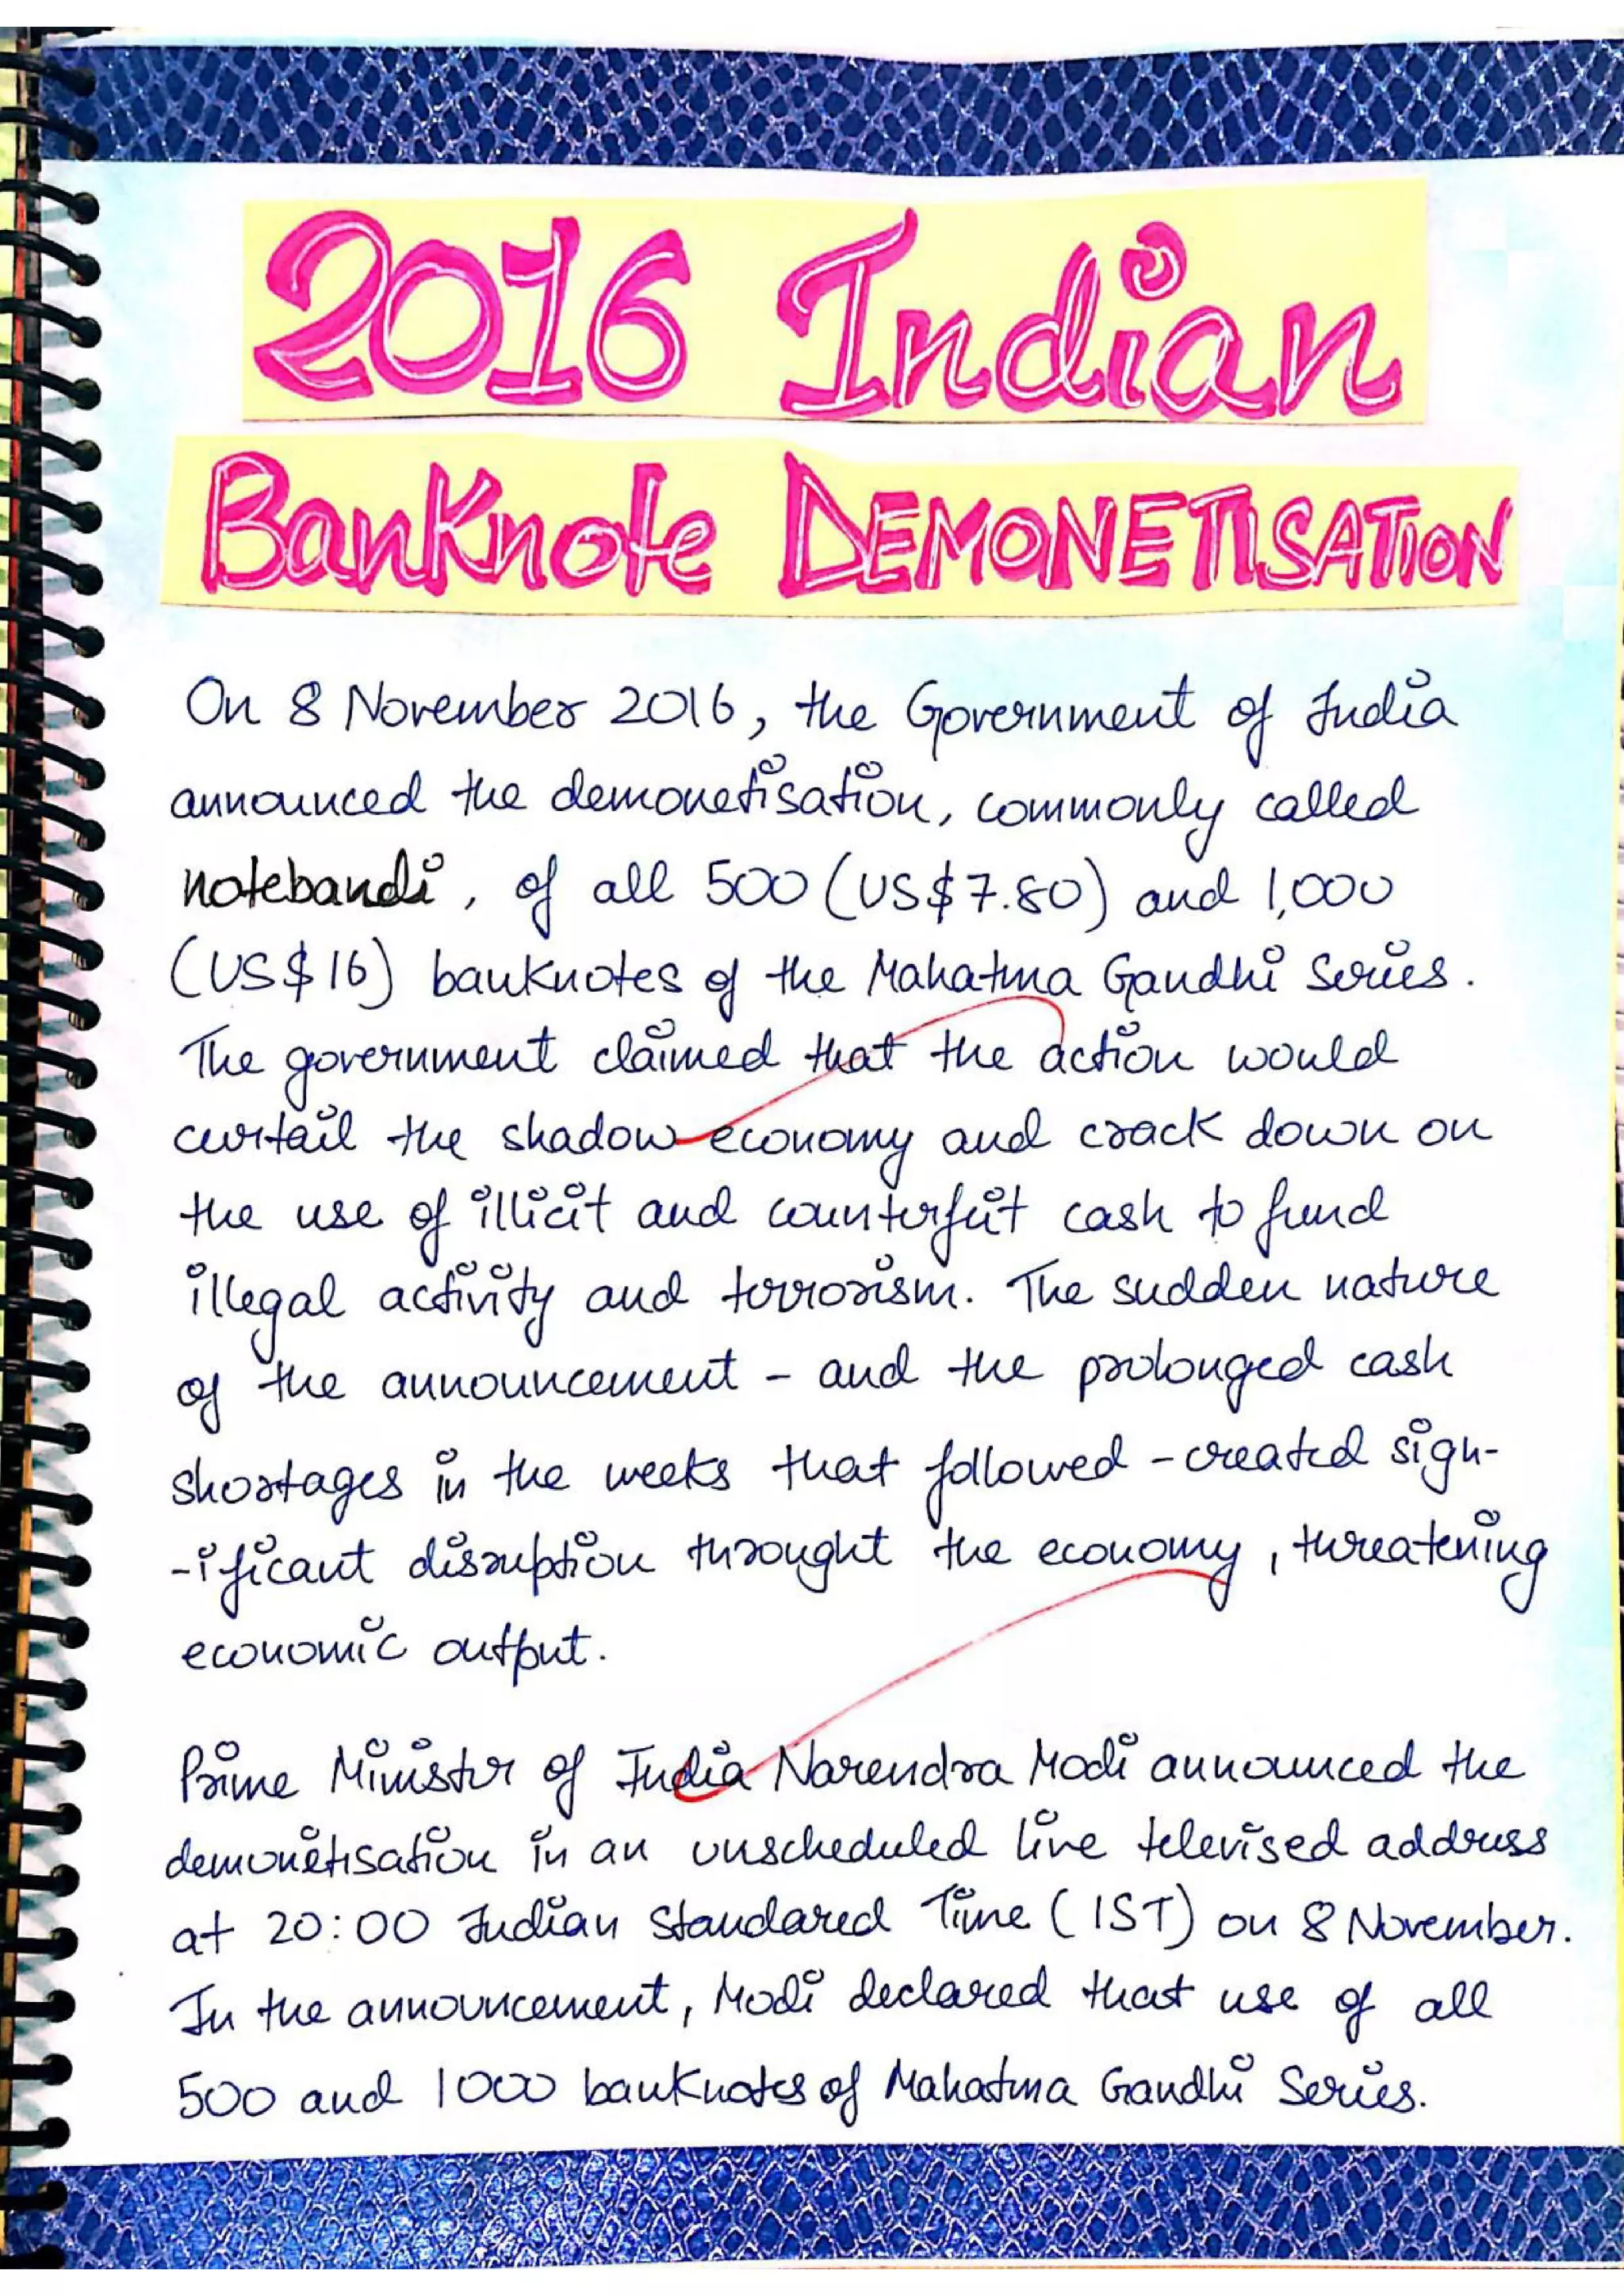 2016 Indian
Banknote DEMONETISATION
On 8 November 2016, the Government of India
announced the demonetisation, commonly called
notebandi, of all 500 (US$7.80) and 1,000
(US$16) banknotes of the Mahatma Gandhi Series.
The government claimed that the action would
curtail the shadow economy and crack down on
the use of illicit and counterfeit cash to fund
illegal activity and terrorism. The sudden nature
of the announcement - and the prolonged cash
shortages in the weeks that followed - created sign-
-ificant disruption throught the economy, threatening
economic output.
Prime Minister of India Narendra Modi announced the
demonetisation in an unscheduled live televised address
at 20:00 Indian Standared Time (IST) on 8 November.
In the announcement, Modi declared that use of all
500 and 1000 banknotes of Mahatma Gandhi Series.